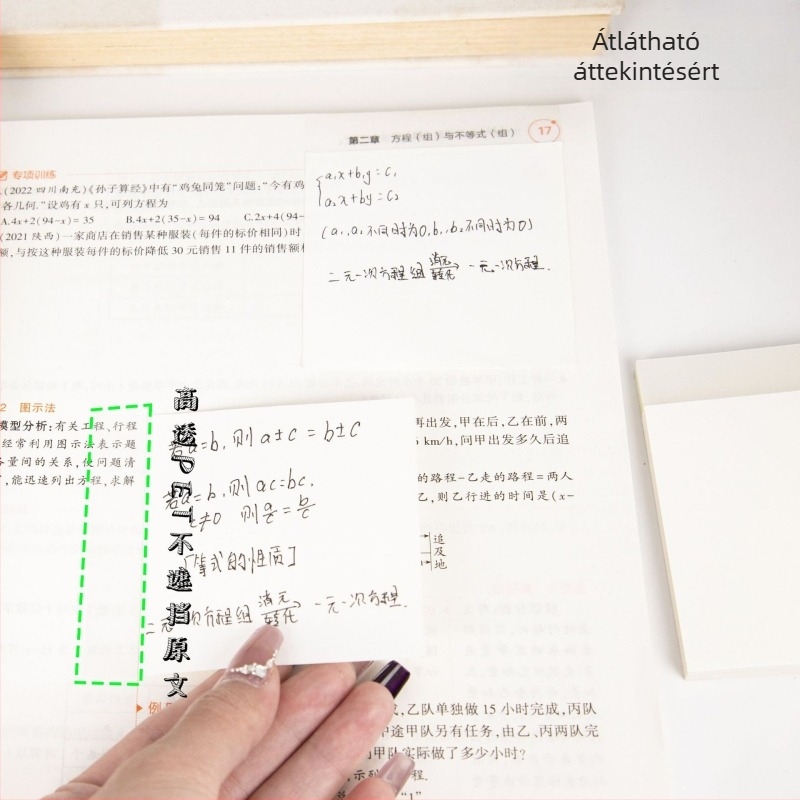 Átlátható
áttekintésért
第二章 方程（组）与不等式（组） 17
专项训练
(2022 四川南充)《孙子算经》中有“鸡兔同笼”问题：“今有鸡
各几何.”设鸡有 x 只,可列方程为
A.4x+2(94-x)=35 B.4x+2(35-x)=94 C.2x+4(94-
(2021 陕西)一家商店在销售某种服装(每件的标价相同)时
额,与按这种服装每件的标价降低 30 元销售 11 件的销售额
a₁x+b₁y=c₁
a₂x+by=c₂
(a₁,a₂不同时为0,b₁,b₂不同时为0)
二元一次方程组 消元 转化 一元一次方程.
2 图示法
模型分析:有关工程、行程
经常利用图示法表示题
各量间的关系,使问题清
,能迅速列出方程,求解
高透PET不遮挡原文
若a=b,则 a±c=b±c
若a=b,则 ac=bc,
c≠0 则 a/c=b/c
[等式的性质]
二元一次方程组 消元 转化 一元一次方程.
再出发,甲在后,乙在前,两
km/h,问甲出发多久后追
的路程-乙走的路程=两人
乙,则乙行进的时间是(x-
追
及
地
例
成,乙队单独做 15 小时完成,丙队
中途甲队另有任务,由乙、丙两队完
甲队实际做了多少小时?
示列 程.
“1”